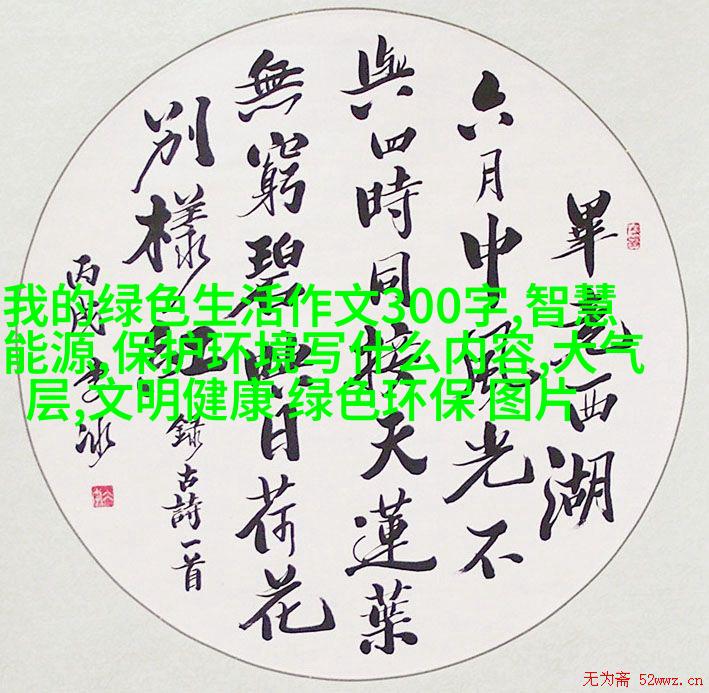 畢竟西湖
六月中風光不
與四時同接天蓮葉
無窮碧映日荷花
別樣紅 錄古詩一首
丙戌李冰
我的绿色生活作文300字,智慧
能源,保护环境写什么内容,大气
层,文明健康 绿色环保 图片
无为斋 52wwz.cn